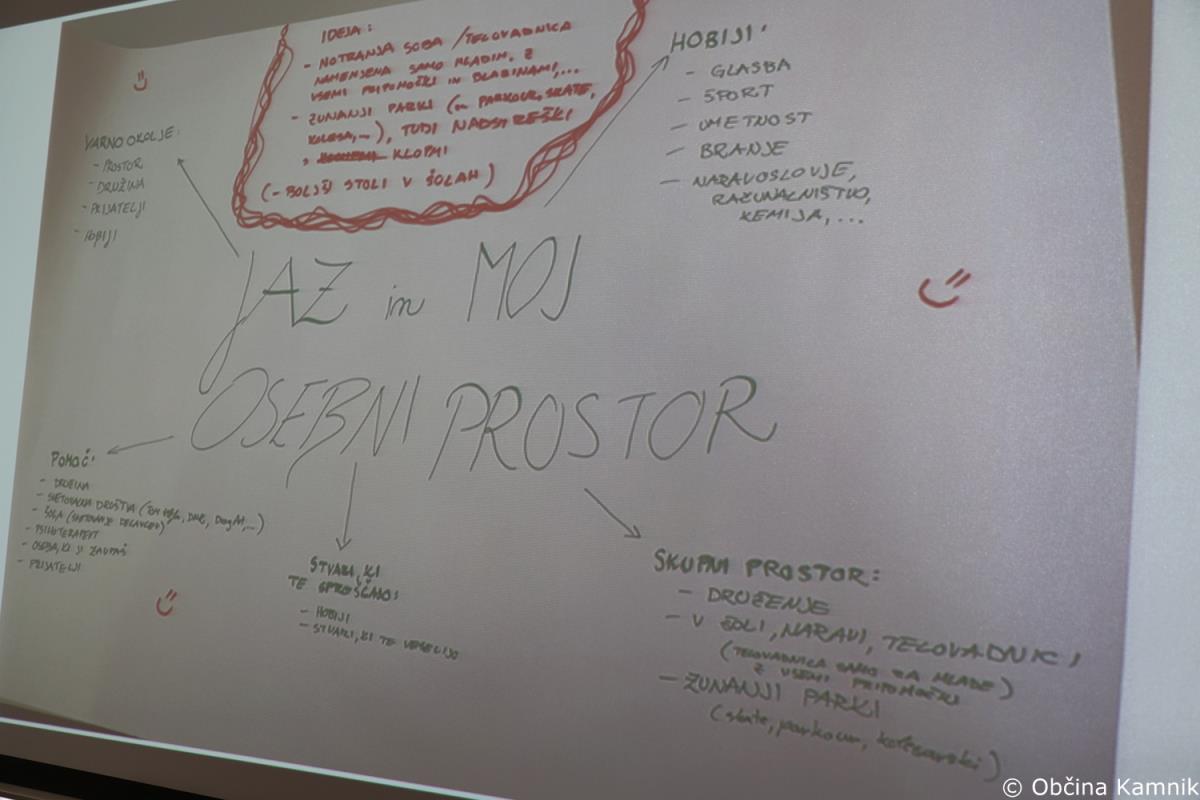 IDEJA:
- NOTRANJA SOBA / TELOVADNICA
NAMENJENA SAMO MLADIM, Z
VSEMI PRIPOMOČKI IN BLAZINAMI,...
- ZUNANJI PARKI (PARKOUR, SKATE,
KOLESA,...), TUDI NADSTREŠKI
, KLOPMI
(- BOLJŠI STOLI V ŠOLAH)
HOBIJI:
- GLASBA
- ŠPORT
- UMETNOST
- BRANJE
- NARAVOSLOVJE,
RAČUNALNIŠTVO,
KEMIJA,...
VARNO OKOLJE:
- PROSTOR
- DRUŽINA
- PRIJATELJI
- HOBIJI
JAZ in MOJ
OSEBNI PROSTOR
POMOČ:
- DRUŽINA
- SVETOVALNA DRUŠTVA (TOM
- ŠOLA (SVETOVANJE DELAVCEV)
- PSIHOTERAPEVT
- OSEBA, KI JI ZAUPAŠ
- PRIJATELJI
STVARI, KI
TE SPROŠČAJO:
- HOBIJI
- STVARI, KI TE VESELIJO
SKUPNI PROSTOR:
- DRUŽENJE
- V ŠOLI, NARAVI, TELOVADNICI
(TELOVADNICA SAMO ZA MLADE)
Z VSEMI PRIPOMOČKI
- ZUNANJI PARKI
(skate, parkour, kolesarski)
© Občina Kamnik